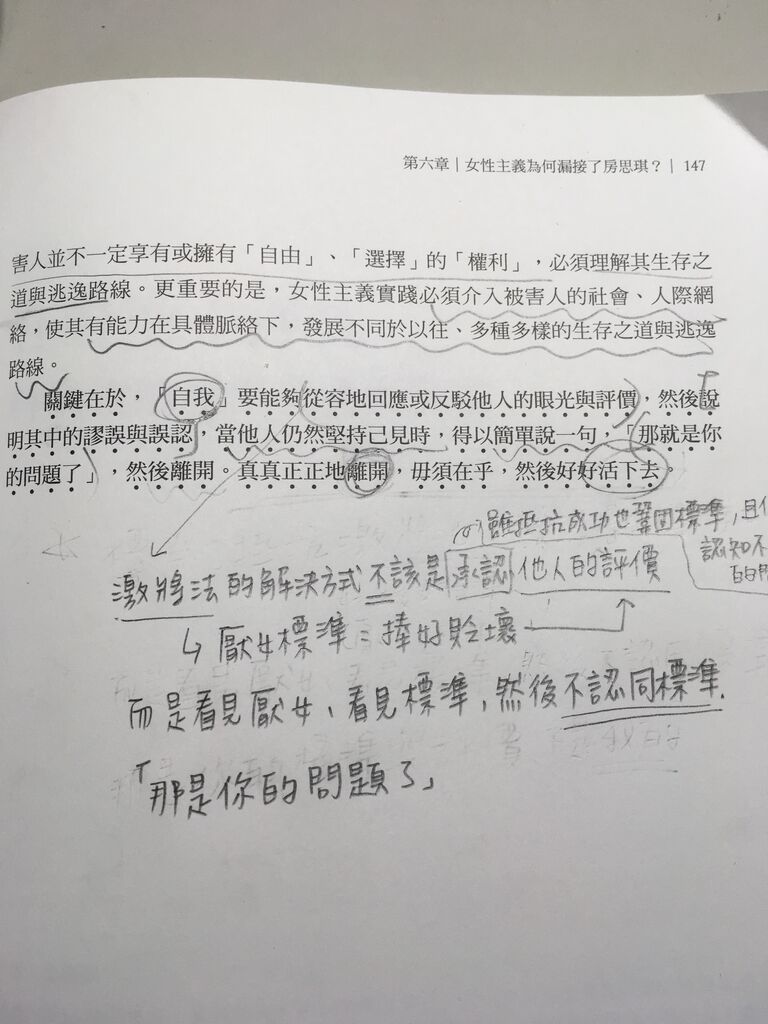 第六章｜女性主義為何漏接了房思琪？｜ 147
害人並不一定享有或擁有「自由」、「選擇」的「權利」，必須理解其生存之
道與逃逸路線。更重要的是，女性主義實踐必須介入被害人的社會、人際網
絡，使其有能力在具體脈絡下，發展不同於以往、多種多樣的生存之道與逃逸
路線。
關鍵在於，「自我」要能夠從容地回應或反駁他人的眼光與評價，然後說
明其中的謬誤與誤認，當他人仍然堅持己見時，得以簡單說一句，「那就是你
的問題了」，然後離開。真真正正地離開，毋須在乎，然後好好活下去。
雖抵抗成功也鞏固標準，且
認知不
的問
激將法的解決方式不該是承認他人的評價
↳ 厭女標準：捧好貶壞
而是看見厭女、看見標準，然後不認同標準.
「那是你的問題了」